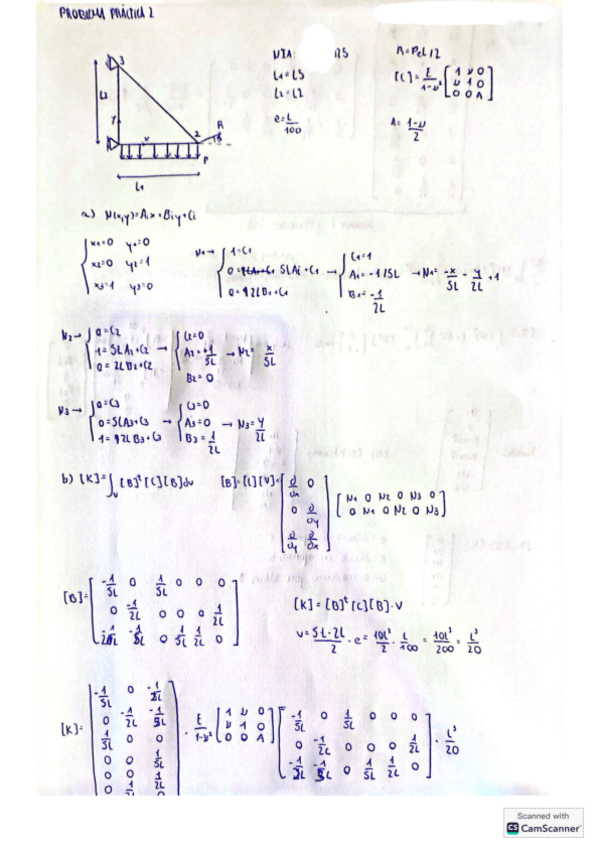 PROBLEMA PRÁCTICA 2
NIA: 25
R=PeL/2
L1=L5
L2=L2
e=L/100
[C]=E/1-ν² [1 ν 0
ν 1 0
0 0 A]
A=1-ν/2
3
L2
Y
x
2
R
P
L1
a) N(x,y)=Aix+Biy+Ci
x1=0 y1=0
x2=0 y2=1
x3=1 y3=0
N1→ 1=C1
0=5LAi+C1
0=2LB1+C1
→ C1=1
Ai=-1/5L
B1=-1/2L
→N1=-x/5L-y/2L+1
N2→ 0=C2
1=5LA2+C2
0=2LB2+C2
→ C2=0
A2=+1/5L
B2=0
→N2=x/5L
N3→ 0=C3
0=5LA3+C3
1=2LB3+C3
→ C3=0
A3=0
B3=1/2L
→N3=y/2L
b) [K]=∫v [B]ᵗ[C][B]dv [B]=[L][N]=[∂/∂x 0
0 ∂/∂y
∂/∂y ∂/∂x] [N1 0 N2 0 N3 0
0 N1 0 N2 0 N3]
[B]=[-1/5L 0 1/5L 0 0 0
0 -1/2L 0 0 0 1/2L
-1/2L -1/5L 0 1/5L 1/2L 0]
[K]=[B]ᵗ[C][B]·V
V=5L·2L/2·e=10L²/2·L/100=10L³/200=L³/20
[K]=[-1/5L 0 -1/2L
0 -1/2L -1/5L
1/5L 0 0
0 0 1/5L
0 0 1/2L
0 1/2L 0
·E/1-ν² [1 ν 0
ν 1 0
0 0 A]
[-1/5L 0 1/5L 0 0 0
0 -1/2L 0 0 0 1/2L
-1/2L -1/5L 0 1/5L 1/2L 0]·L³/20
Scanned with
CS CamScanner